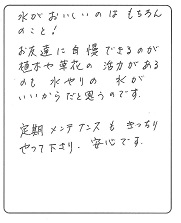 水がおいしいのは もちろん
のこと！
お友達に自慢できるのが
植木や草花の 活力がある
のも 水やりの 水が
いいからだと思うのです.
定期メンテナンスも きっちり
やって下さり. 安心です.